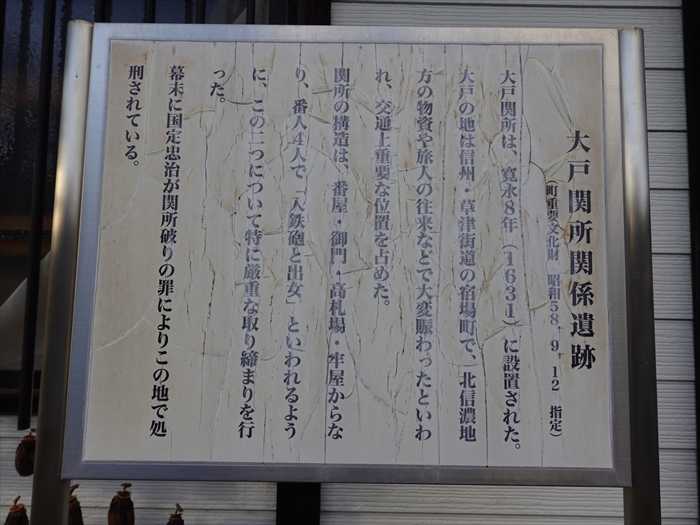 大戸関所関係遺跡
(町重要文化財 昭和58.9.12 指定)
大戸関所は、寛永8年(1631)に設置された。
大戸の地は信州・草津街道の宿場町で、北信濃地
方の物資や旅人の往来などで大変賑わったといわ
れ、交通上重要な位置を占めた。
関所の構造は、番屋・御門・高札場・牢屋からな
り、番人4人で「入鉄砲と出女」といわれるよう
に、この二つについて特に厳重な取り締まりを行
った。
幕末に国定忠治が関所破りの罪によりこの地で処
刑されている。